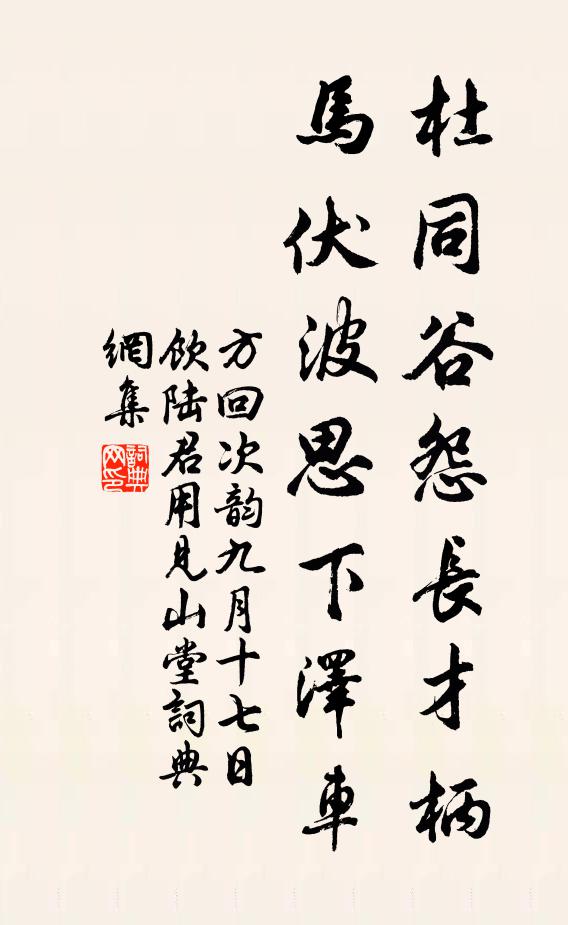 杜同谷怨長才柄
馬伏波思下澤車
方回次韵九月十七日
飲陆君用见山堂詞典
網集
詞典
网印